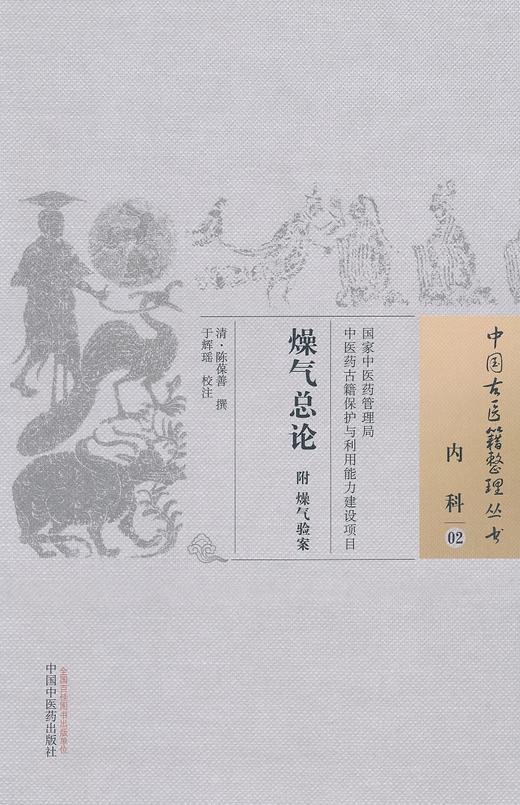 中国古医籍整理丛书
内科 02
国家中医药管理局
中医药古籍保护与利用能力建设项目
燥气总论
附 燥气验案
清·陈葆善 撰
于辉瑶 校注
全国百佳图书出版单位
中国中医药出版社